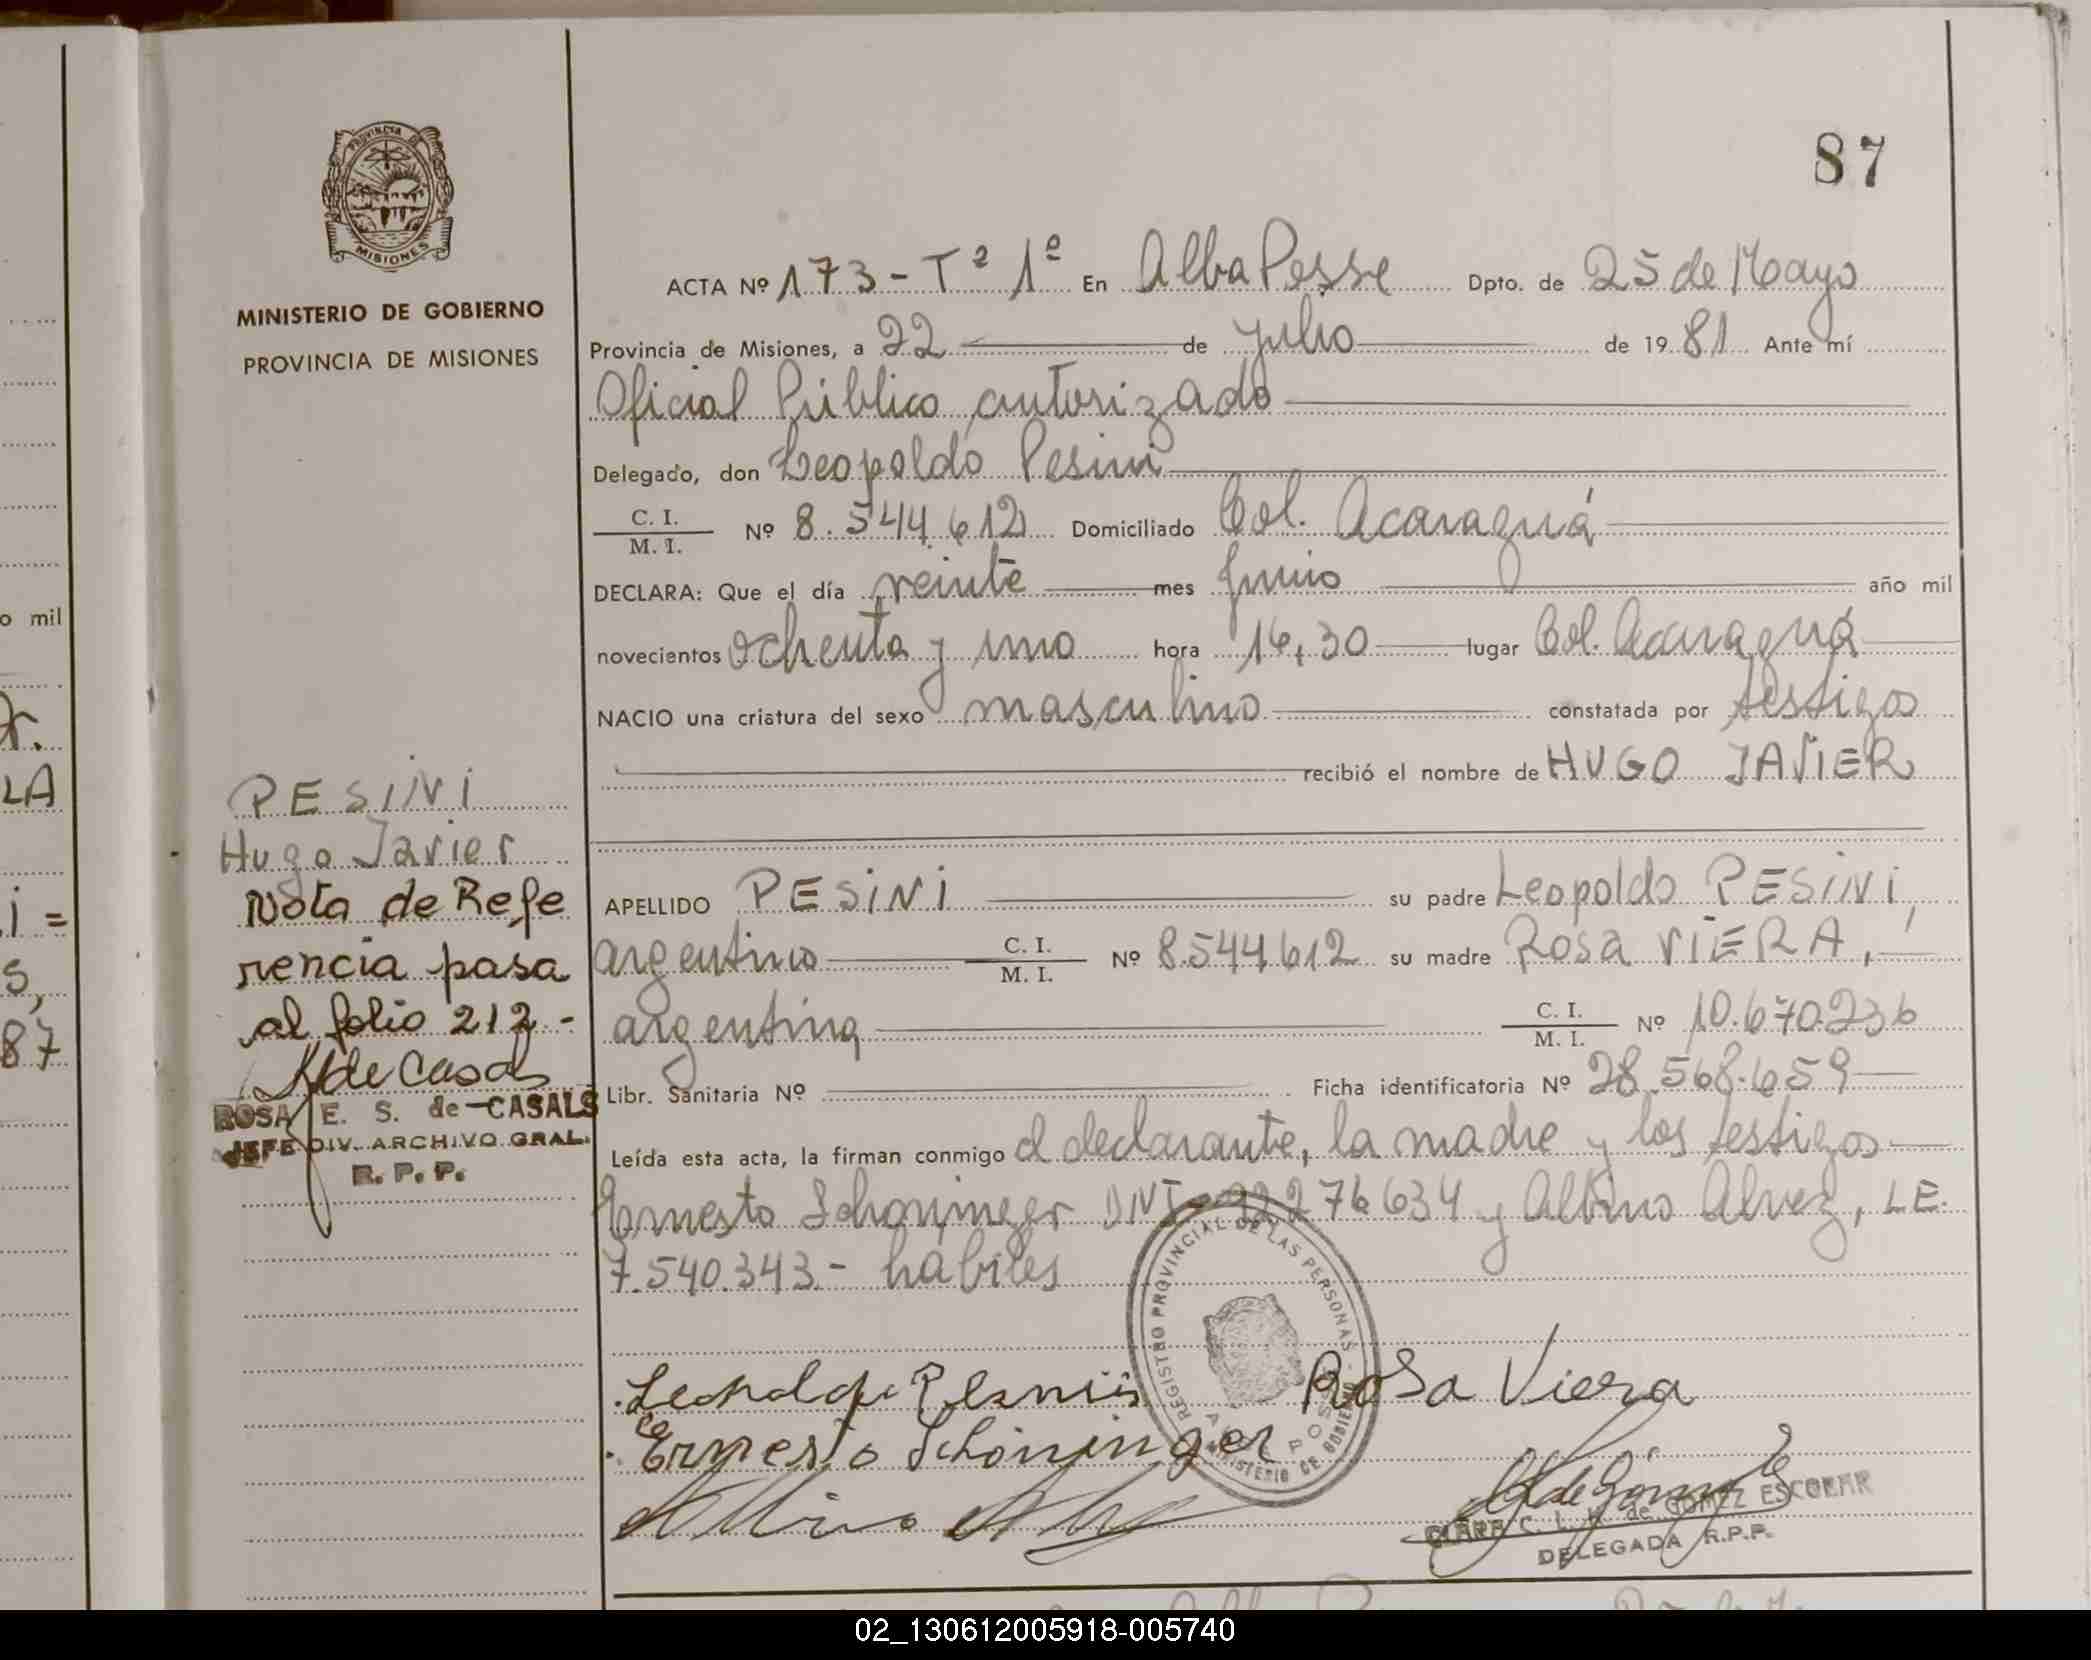 87
PROVINCIA DE
MISIONES
MINISTERIO DE GOBIERNO
PROVINCIA DE MISIONES
ACTA Nº 173 - Tº 1º En Alba Posse Dpto. de 25 de Mayo
Provincia de Misiones, a 22 de julio de 1981 Ante mí
Oficial Público autorizado
Delegado, don Leopoldo Pesini
C. I.
M. I. Nº 8.544.612 Domiciliado Col. Acaraguá
DECLARA: Que el día veinte mes Junio año mil
novecientos ochenta y uno hora 16,30 lugar Col. Acaraguá
NACIO una criatura del sexo masculino constatada por testigos
recibió el nombre de HUGO JAVIER
APELLIDO PESINI su padre Leopoldo PESINI,
argentino C. I. M. I. Nº 8.544.612 su madre Rosa VIERA,
argentina C. I. M. I. Nº 10.670.236
Libr. Sanitaria Nº Ficha identificatoria Nº 28.568.659
Leída esta acta, la firman conmigo el declarante, la madre y los testigos
Ernesto Schoninger DNI 12276634 y Albino Alvez, LE.
7.540.343.- habiles
PESINI
Hugo Javier
Nota de Refe
rencia pasa
al folio 212-
de Casals
ROSA E. S. de CASALS
JEFE DIV. ARCHIVO GRAL.
R. P. P.
REGISTRO PROVINCIAL DE LAS PERSONAS -
MINISTERIO DE GOBIERNO
Leopoldo Pesini
Rosa Viera
Ernesto Schoninger
CLARA C. L. K. de GOMEZ ESCOBAR
DELEGADA R.P.P.
o mil
LA
i =
s,
87
02_130612005918-005740